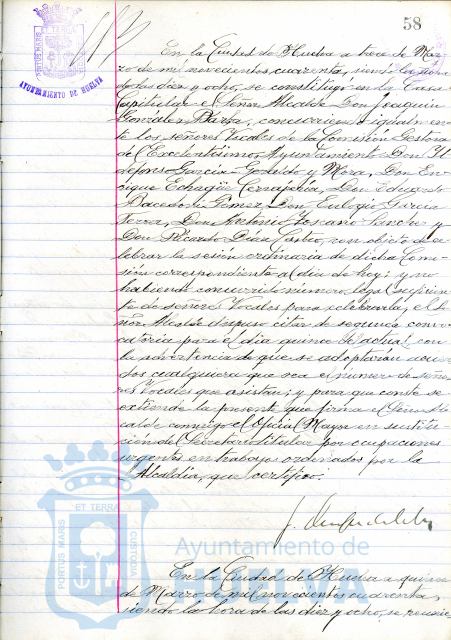 58
PORTUS MARIS
ET TERRAE
CUSTODIA
AYUNTAMIENTO DE HUELVA
En la Ciudad de Huelva a trece de Mar-
zo de mil novecientos cuarenta, siendo la hora
de las diez y ocho, se constituyó en la Casa
Capitular el Señor Alcalde Don Joaquin
González Barba, concurriendo igualmen-
te los señores Vocales de la Comisión Gestora
del Excelentísimo Ayuntamiento Don Il-
defonso García y Mora, Don En-
rique Echagüe Don Eduardo
Gómez, Don Eulogio García
Don Antonio Toscano Sánchez y
Don Ricardo Díaz Castro, con objeto de ce-
lebrar la sesión ordinaria de dicha Comi-
sión correspondiente al día de hoy; y no
habiendo concurrido número legal suficien-
te de señores Vocales para celebrarla, el Se-
ñor Alcalde dispuso citar de segunda convo-
catoria para el día quince del actual, con
la advertencia de que se adoptarán acuer-
dos cualquiera que sea el número de seño-
res Vocales que asistan; y para que conste se
extiende la presente que firma el Señor Al-
calde conmigo el Oficial Mayor en sustitu-
ción del Secretario titular por ocupaciones
urgentes en trabajos ordenados por la
Alcaldía, que certifico.
ET TERRA
PORTUS MARIS
CUSTODIA
Ayuntamiento de
HUELVA
En la Ciudad de Huelva a quince
de Marzo de mil novecientos cuarenta,
siendo la hora de las diez y ocho, se reunie-